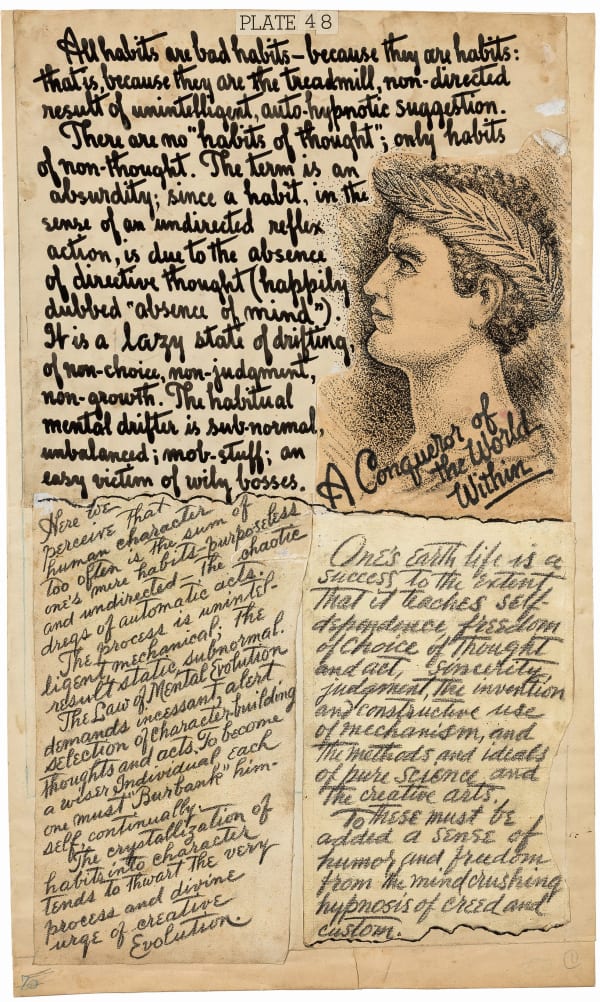 PLATE 48
All habits are bad habits – because they are habits:
that is, because they are the treadmill, non-directed
result of unintelligent, auto-hypnotic suggestion.
There are no "habits of thought"; only habits
of non-thought. The term is an
absurdity; since a habit, in the
sense of an undirected reflex
action, is due to the absence
of directive thought (happily
dubbed "absence of mind").
It is a lazy state of drifting,
of non-choice, non-judgment,
non-growth. The habitual
mental drifter is sub-normal,
unbalanced; mob-stuff; an
easy victim of wily bosses.
A Conqueror of
the World
Within
Here we
perceive that
human character
too often is the sum of
one's mere habits – purposeless
and undirected – the chaotic
dregs of automatic acts.
The process is unintel-
ligent, mechanical; the
result static, subnormal.
The Law of Mental Evolution
demands incessant, alert
selection of character-building
thoughts and acts. To become
a wiser Individual, each
one must "Burbank" him-
self continually.
The crystallization of
habits into character
tends to thwart the very
process and divine
urge of creative
Evolution.
One's Earth life is a
success to the extent
that it teaches self-
dependence, freedom
of choice of thought
and act, sincerity,
judgment, the invention
and constructive use
of mechanism, and
the methods and ideals
of pure science and
the creative arts.
To these must be
added a sense of
humor, and freedom
from the mindcrushing
hypnosis of creed and
custom.